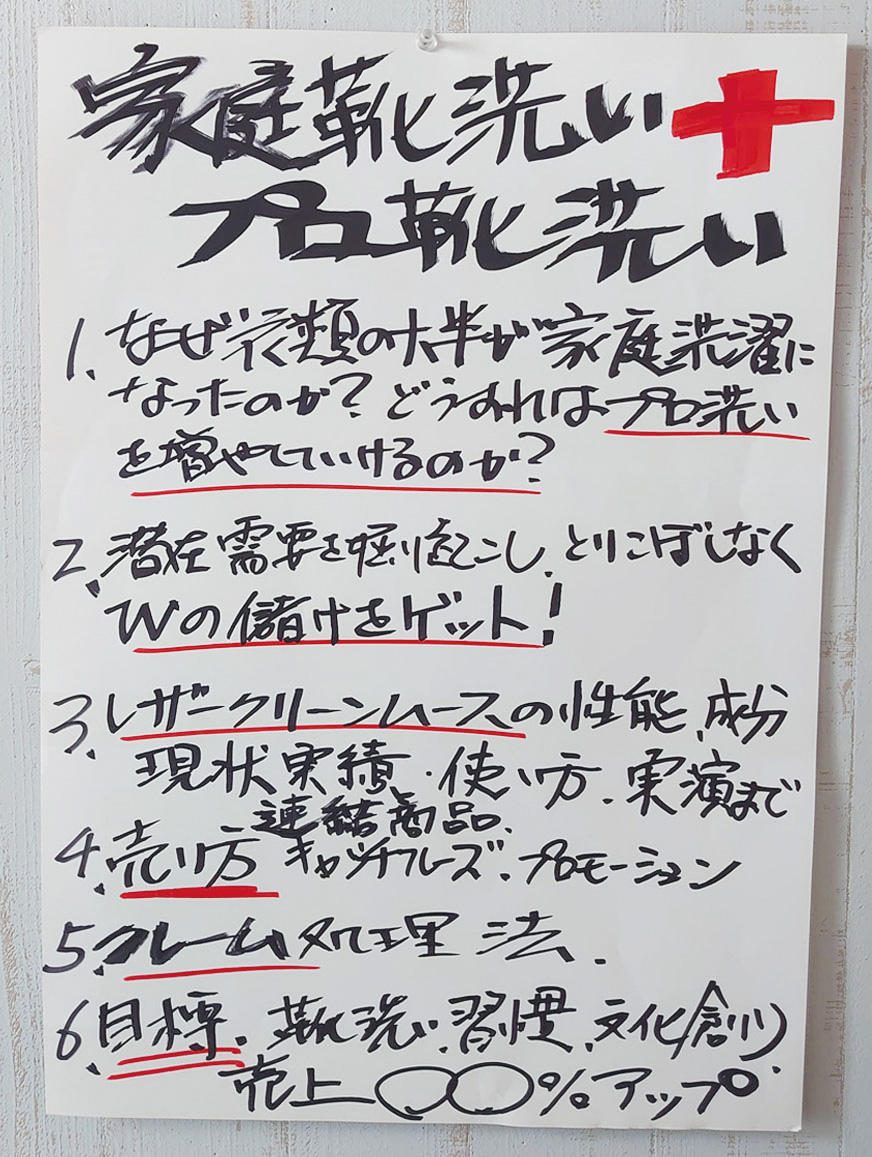 家庭靴洗い＋
プロ靴洗い
1、なぜ衣類の大半が家庭洗濯に
なったのか？どうすればプロ洗い
を増やしていけるのか？
2、潜在需要を掘り起こし、とりこぼしなく
Wの儲けをゲット！
3、レザークリーンムースの性能、成分
現状実績、使い方、実演まで
連結商品、
4、売り方 キャッチフレーズ、プロモーション
5、クレーム処理法.
6、目標、靴洗い、習慣、文化創り、
売上〇〇%アップ